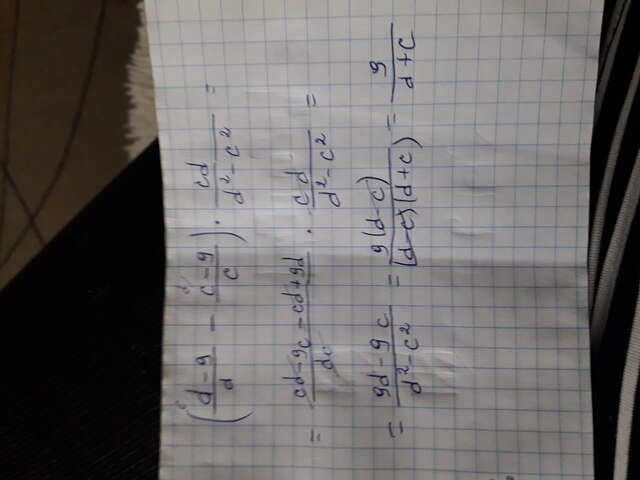 ( (d-9)/d - (c-9)/c ) · cd/(d²-c²) =
= (cd-9c-cd+9d)/dc · cd/(d²-c²) =
= (9d-9c)/(d²-c²) = 9(d-c)/((d-c)(d+c)) = 9/(d+c)